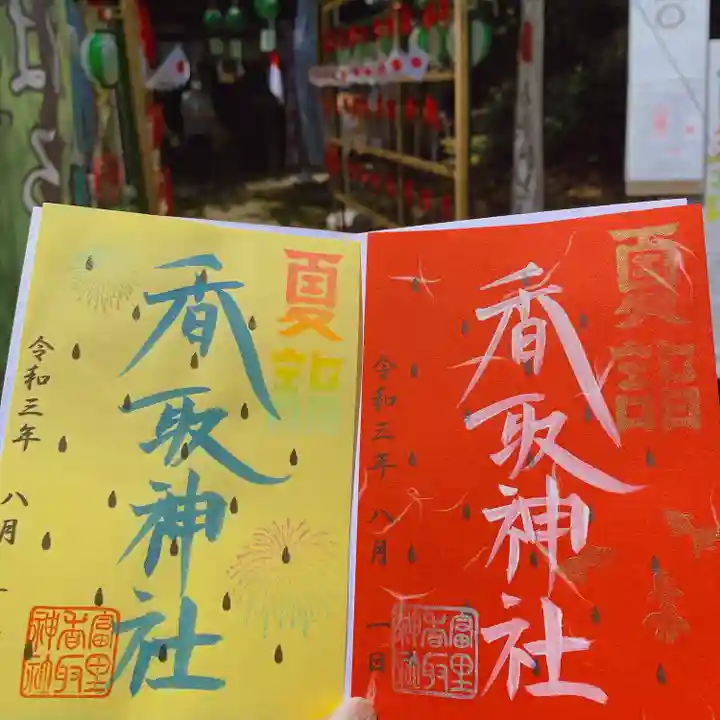 夏詣
香取神社
令和三年 八月 一
富里
香取
神社
夏詣
香取神社
令和三年 八月 一日
富里
香取
神社